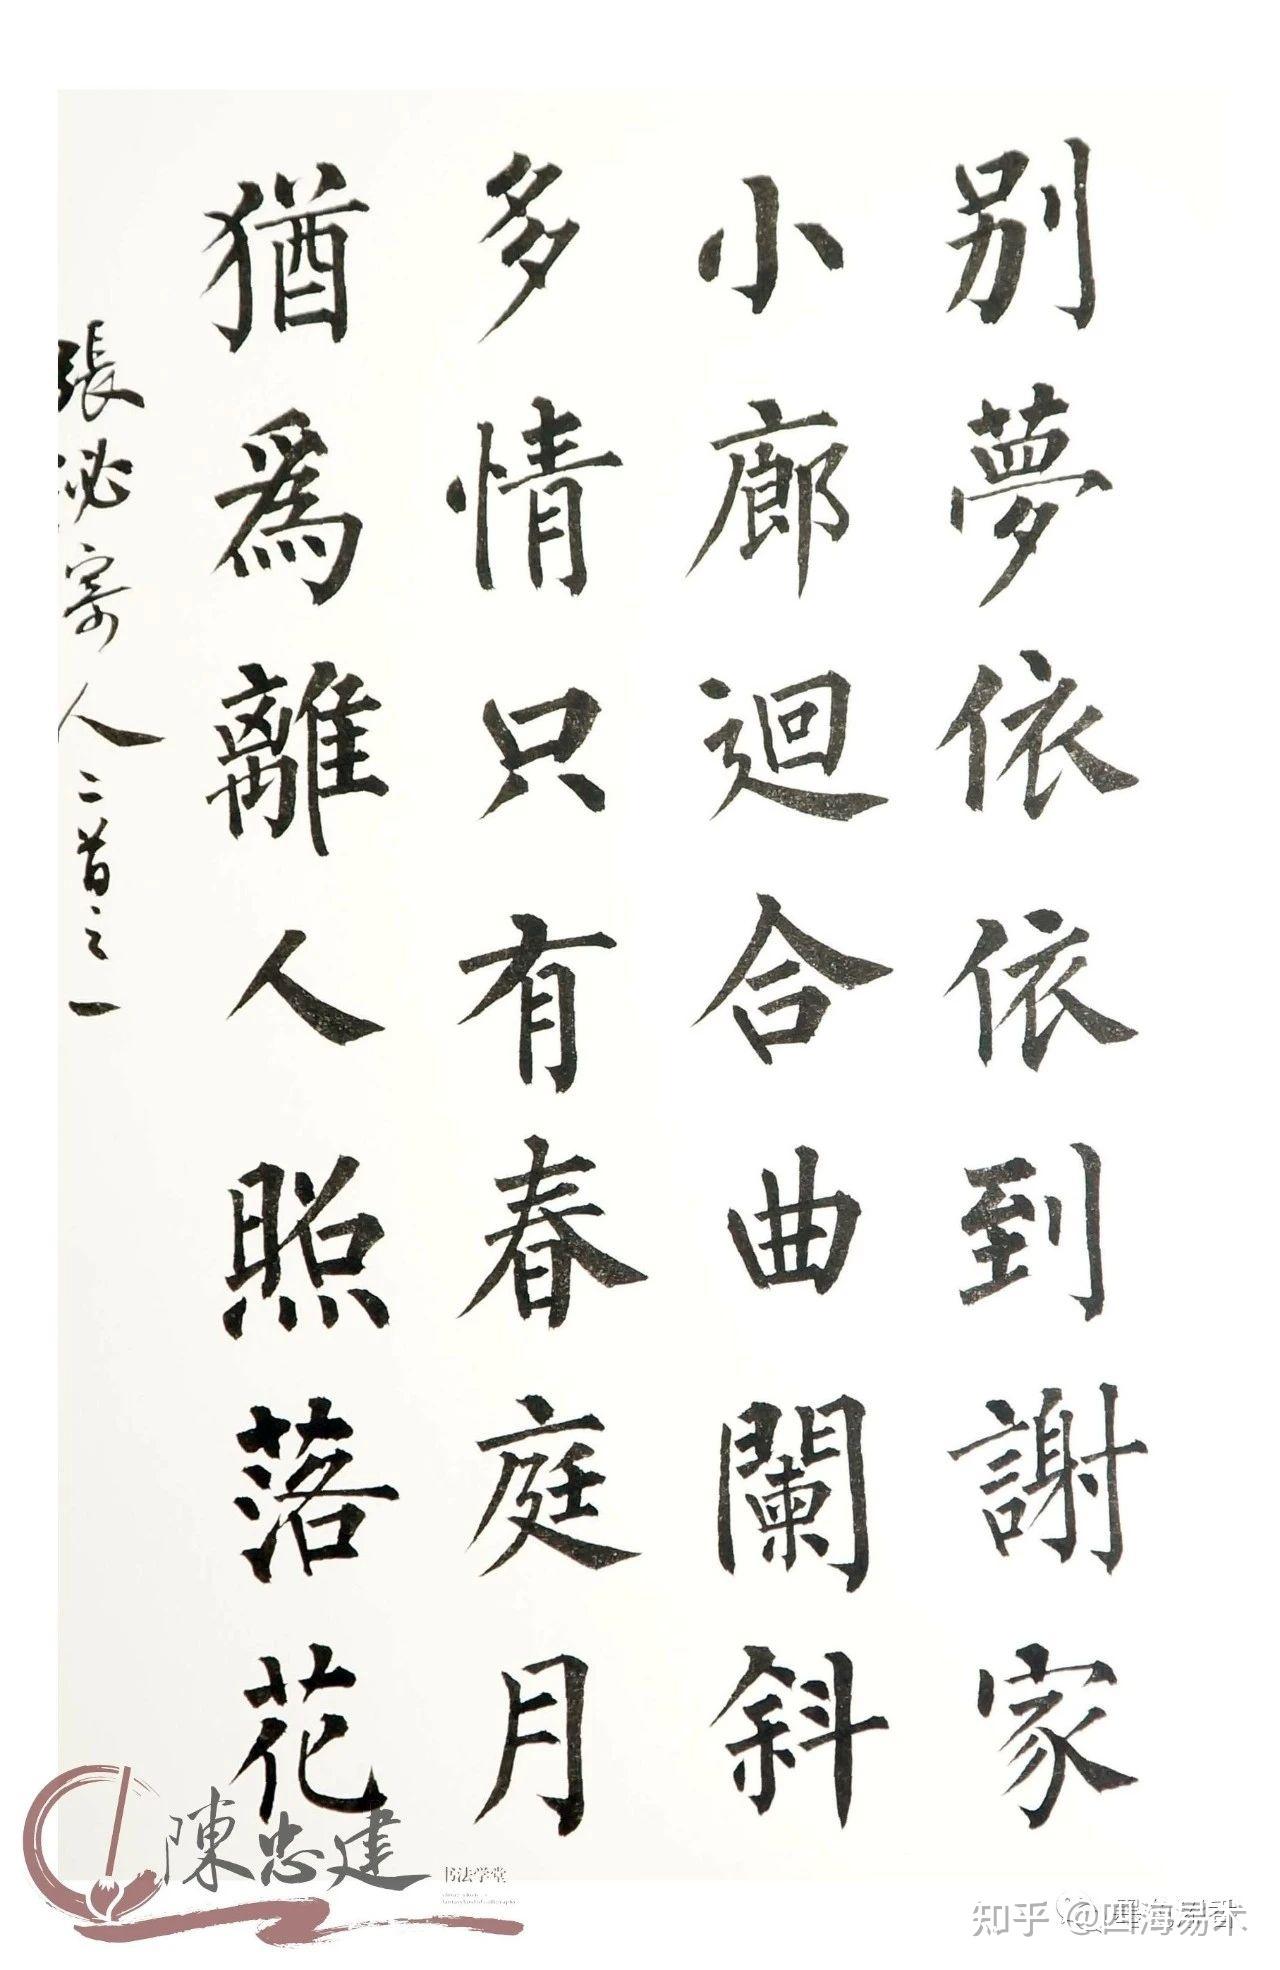 别夢依依到謝家
小廊迴合曲闌斜
多情只有春庭月
猶爲離人照落花
張泌寄人二首之一
陳忠建
书法学堂
知乎 @四海易术